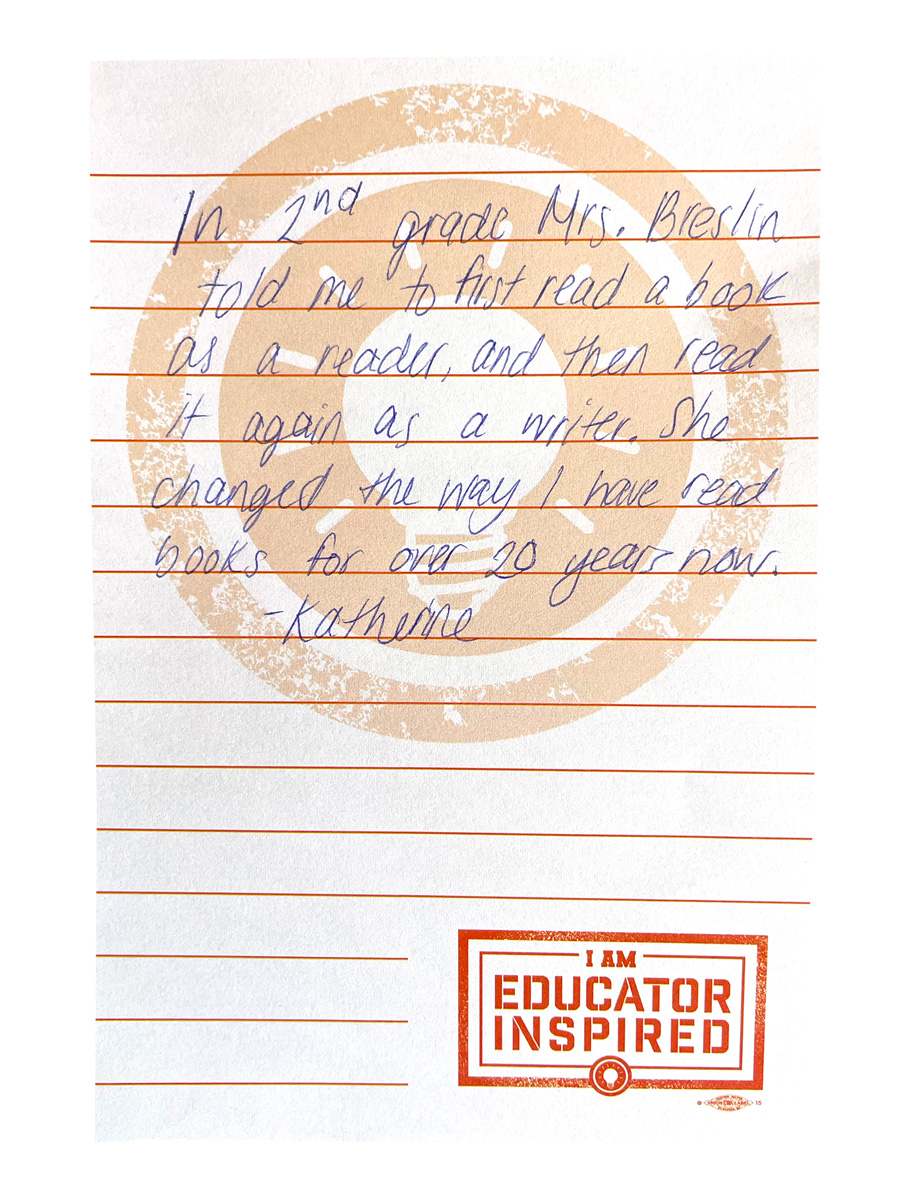 In 2nd grade Mrs. Breslin
told me to first read a book
as a reader, and then read
it again as a writer. She
changed the way I have read
books for over 20 years now.
-Katherine
I AM
EDUCATOR
INSPIRED
15